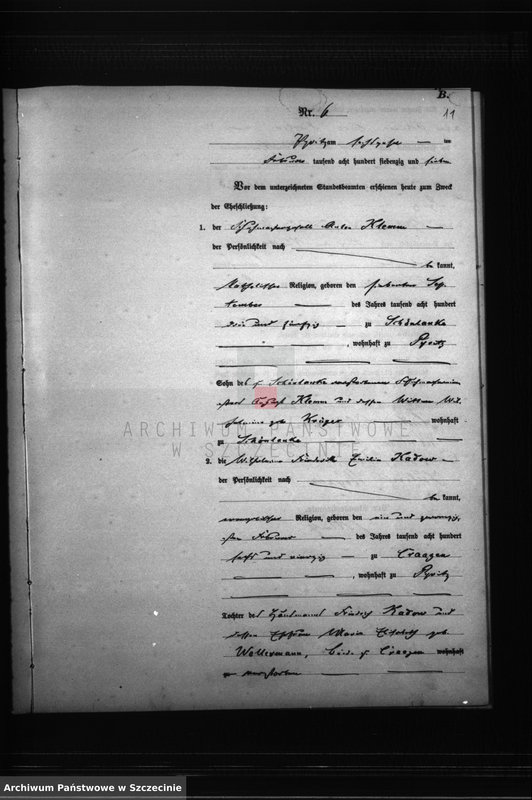 B.
11
Nr. 6
Pyritz am sechszehn ten
Februar tausend acht hundert siebenzig und sieben
Vor dem unterzeichneten Standesbeamten erschienen heute zum Zweck
der Eheschließung:
1. der Klemm
der Persönlichkeit nach
be kannt,
katholischer Religion, geboren den siebenten Sep
tember des Jahres tausend acht hundert
drei und fünfzig zu Schönlanke
, wohnhaft zu Pyritz
Sohn des zu Schönlanke verstorbenen
August Klemm und dessen Wittwe Wil
helmine geb. Krüger wohnhaft
zu Schönlanke
ARCHIWUM PAŃSTWOWE
W SZCZECINIE
2. die Wilhelmine Friederike Emilie Kadow
der Persönlichkeit nach
be kannt,
evangelischer Religion, geboren den ein und zwanzig
sten Februar des Jahres tausend acht hundert
sechs und vierzig zu Craazen
, wohnhaft zu Pyritz
Tochter des Friedrich Kadow und
dessen Ehefrau Maria Elisabeth geb.
Woltermann, beide zu Craazen wohnhaft
zu verstorben
Archiwum Państwowe w Szczecinie